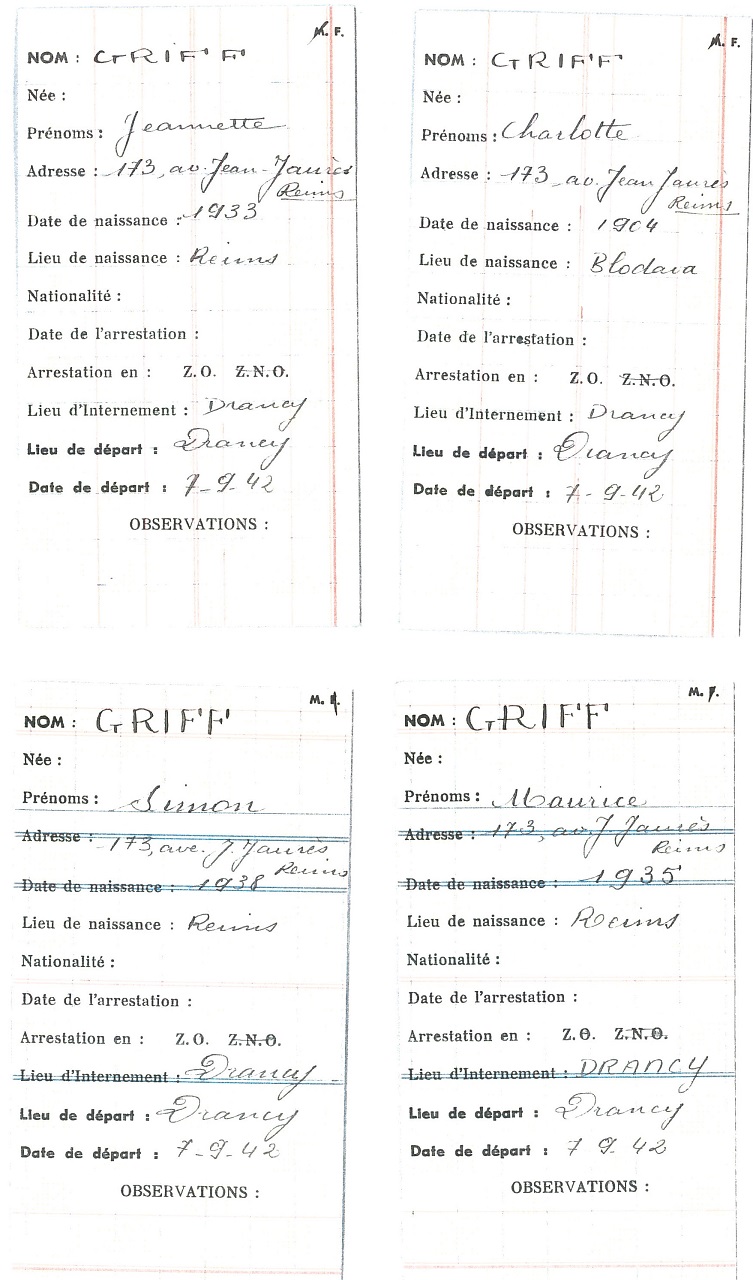 M. F.
NOM : GRIFF
Née :
Prénoms : Jeannette
Adresse : 173, av. Jean-Jaurès
Reims
Date de naissance : 1933
Lieu de naissance : Reims
Nationalité :
Date de l'arrestation :
Arrestation en : Z.O. Z.N.O.
Lieu d'Internement : Drancy
Lieu de départ : Drancy
Date de départ : 7-9-42
OBSERVATIONS :
M. F.
NOM : GRIFF
Née :
Prénoms : Charlotte
Adresse : 173, av. Jean Jaurès
Reims
Date de naissance : 1904
Lieu de naissance : Blodava
Nationalité :
Date de l'arrestation :
Arrestation en : Z.O. Z.N.O.
Lieu d'Internement : Drancy
Lieu de départ : Drancy
Date de départ : 7-9-42
OBSERVATIONS :
M. F.
NOM : GRIFF
Née :
Prénoms : Simon
Adresse : 173, ave. J. Jaurès
Reims
Date de naissance : 1938
Lieu de naissance : Reims
Nationalité :
Date de l'arrestation :
Arrestation en : Z.O. Z.N.O.
Lieu d'Internement : Drancy
Lieu de départ : Drancy
Date de départ : 7-9-42
OBSERVATIONS :
M. F.
NOM : GRIFF
Née :
Prénoms : Maurice
Adresse : 173, av. J. Jaurès
Reims
Date de naissance : 1935
Lieu de naissance : Reims
Nationalité :
Date de l'arrestation :
Arrestation en : Z.O. Z.N.O.
Lieu d'Internement : DRANCY
Lieu de départ : Drancy
Date de départ : 7 9-42
OBSERVATIONS :